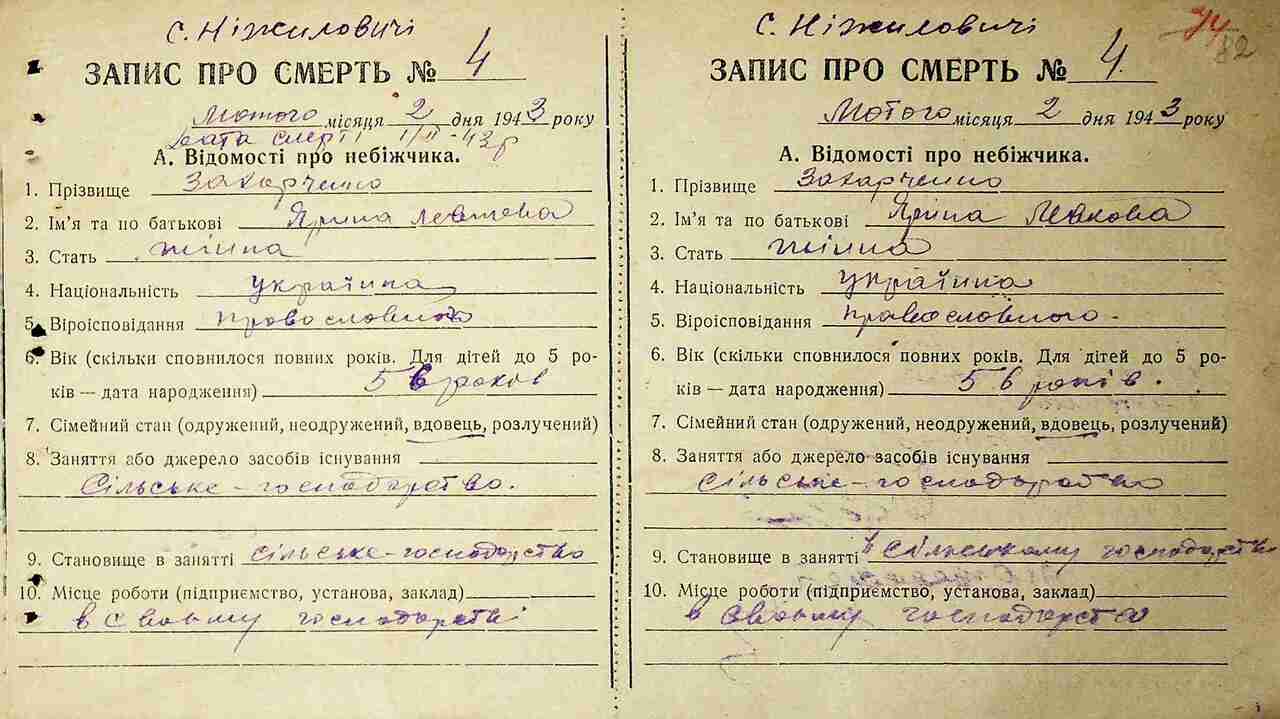 с. Ніжиловичі
ЗАПИС ПРО СМЕРТЬ № 4
Лютого місяця 2 дня 1943 року
Дата смерті 1/ІІ - 43р
А. Відомості про небіжчика.
1. Прізвище Захарченко
2. Ім'я та по батькові Ярина Левкова
3. Стать жінка
4. Національність українка
5. Віроісповідання православного
6. Вік (скільки сповнилося повних років. Для дітей до 5 ро-
ків — дата народження) 56 років
7. Сімейний стан (одружений, неодружений, вдовець, розлучений)
8. Заняття або джерело засобів існування
Сільське-господарство.
9. Становище в занятті сільське-господарство
10. Місце роботи (підприємство, установа, заклад)
в своьму господарстві
с. Ніжиловичі
74
82
ЗАПИС ПРО СМЕРТЬ № 4.
Лютого місяця 2 дня 1943 року
А. Відомості про небіжчика.
1. Прізвище Захарченко
2. Ім'я та по батькові Ярина Левкова
3. Стать жінка
4. Національність українка
5. Віроісповідання православного.
6. Вік (скільки сповнилося повних років. Для дітей до 5 ро-
ків — дата народження) 56 років.
7. Сімейний стан (одружений, неодружений, вдовець, розлучений)
8. Заняття або джерело засобів існування
сільське-господарство
9. Становище в занятті в сільському господарстві
10. Місце роботи (підприємство, установа, заклад)
в своьму господарстві